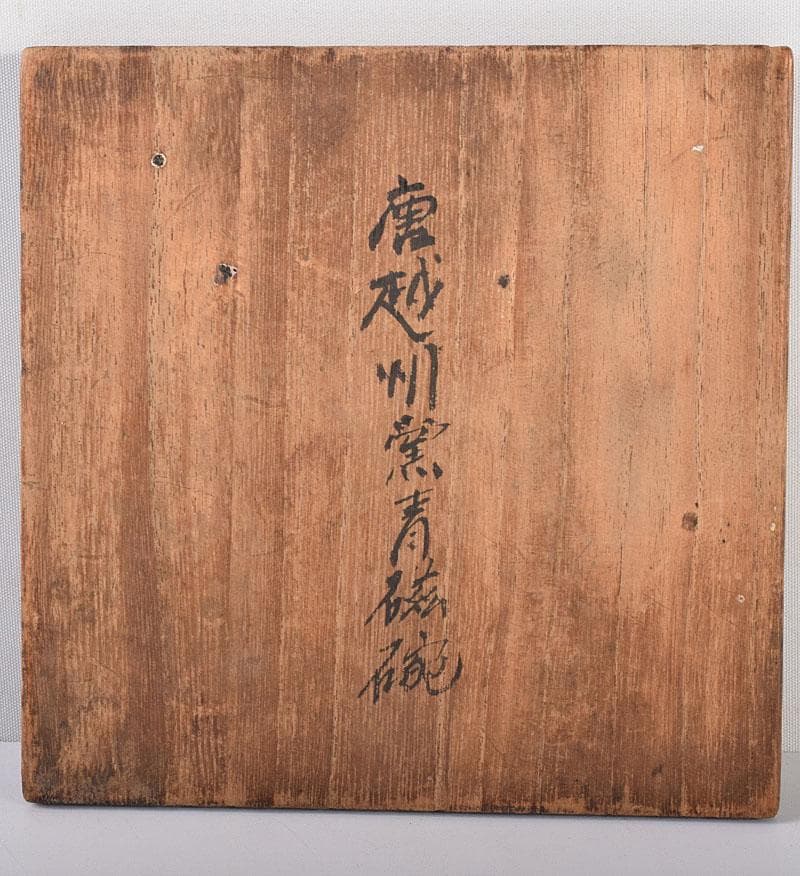 唐越州窯青磁碗